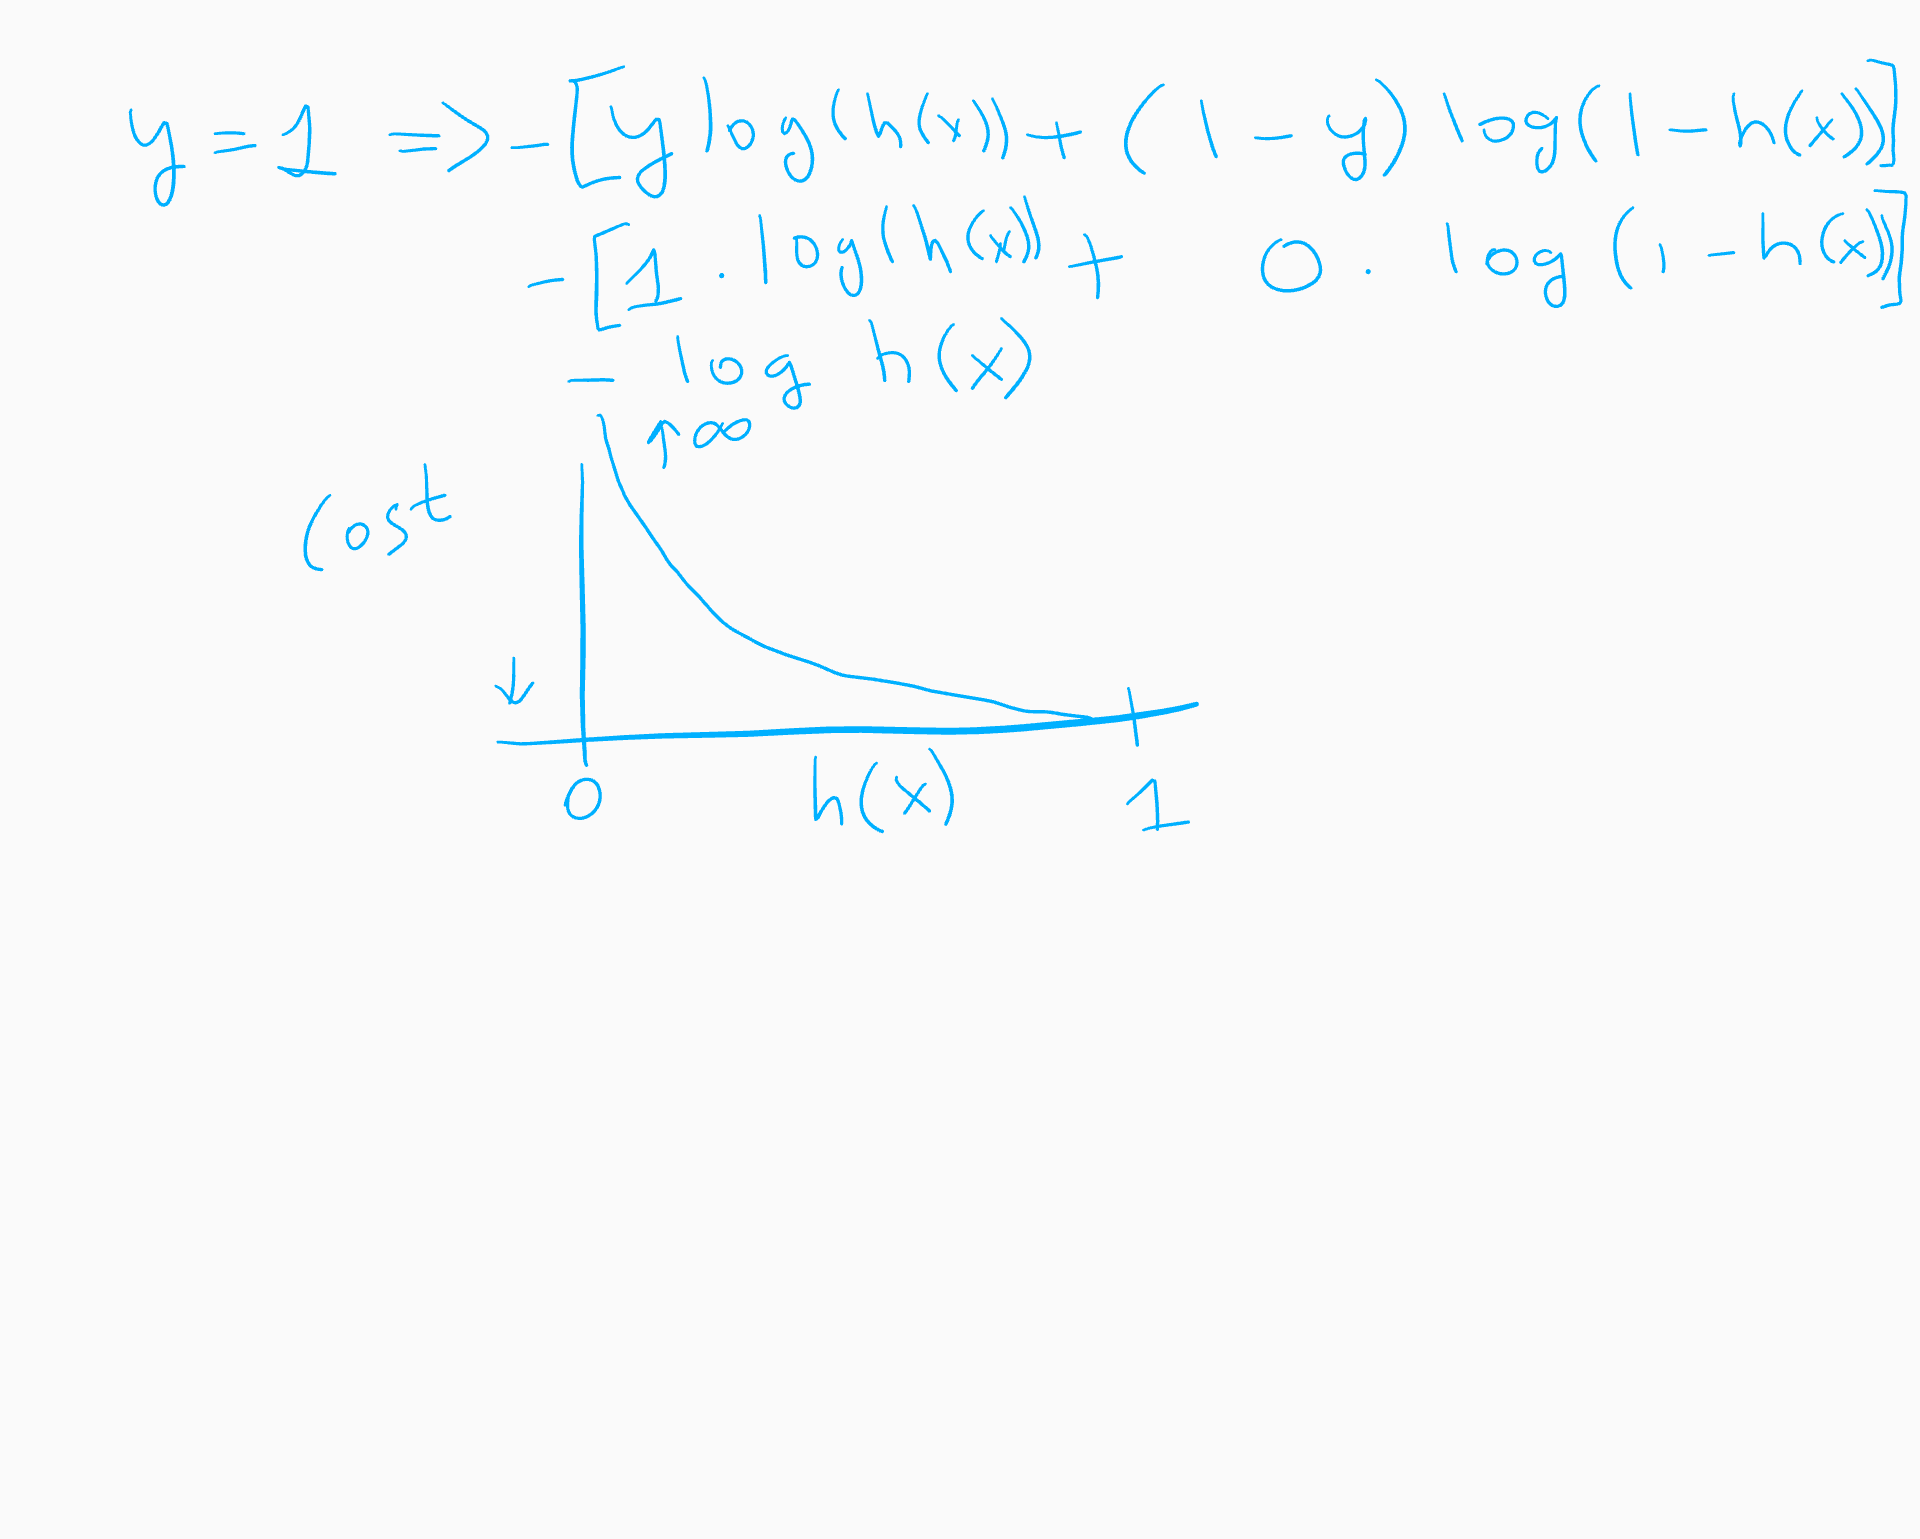 y = 1 => -[y log(h(x)) + (1 - y) log(1 - h(x))]
-[1 . log(h(x)) + 0 . log(1 - h(x))]
- log h(x)
↑ ∞
Cost
↓
0 h(x) 1